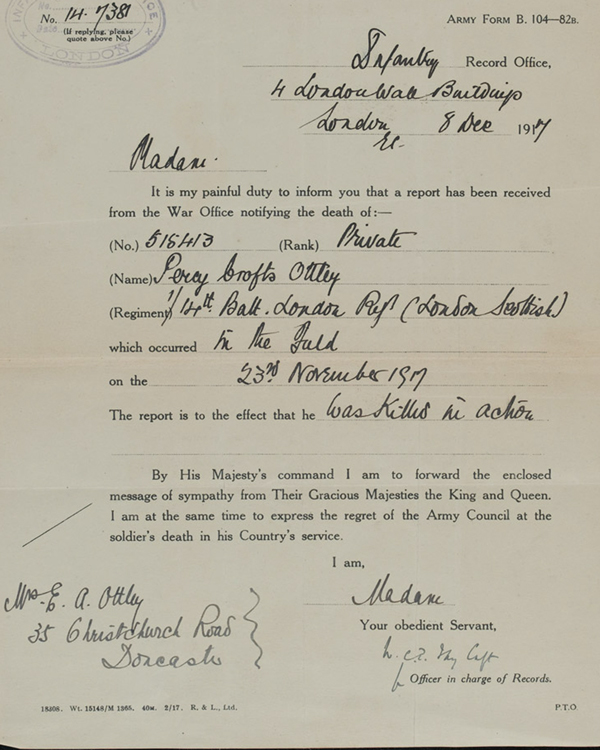 No. 14.7381
(If replying, please
quote above No.)
LONDON
ARMY FORM B. 104—82B.
Infantry Record Office,
4 London Wall Buildings
London 8 Dec 1917
EC.
Madam.
It is my painful duty to inform you that a report has been received
from the War Office notifying the death of:—
(No.) 515413 (Rank) Private
(Name) Percy Crofts Ottley
(Regiment) 1/14th Batt. London Regt (London Scottish)
which occurred in the Field
on the 23rd November 1917
The report is to the effect that he was Killed in action
By His Majesty's command I am to forward the enclosed
message of sympathy from Their Gracious Majesties the King and Queen.
I am at the same time to express the regret of the Army Council at the
soldier's death in his Country's service.
I am,
Madam
Your obedient Servant,
Capt
for Officer in charge of Records.
Mrs. E. A. Ottley
35 Christchurch Road
Doncaster
18308. Wt. 15148/M 1365. 40m. 2/17. R. & L., Ltd.
P.T.O.